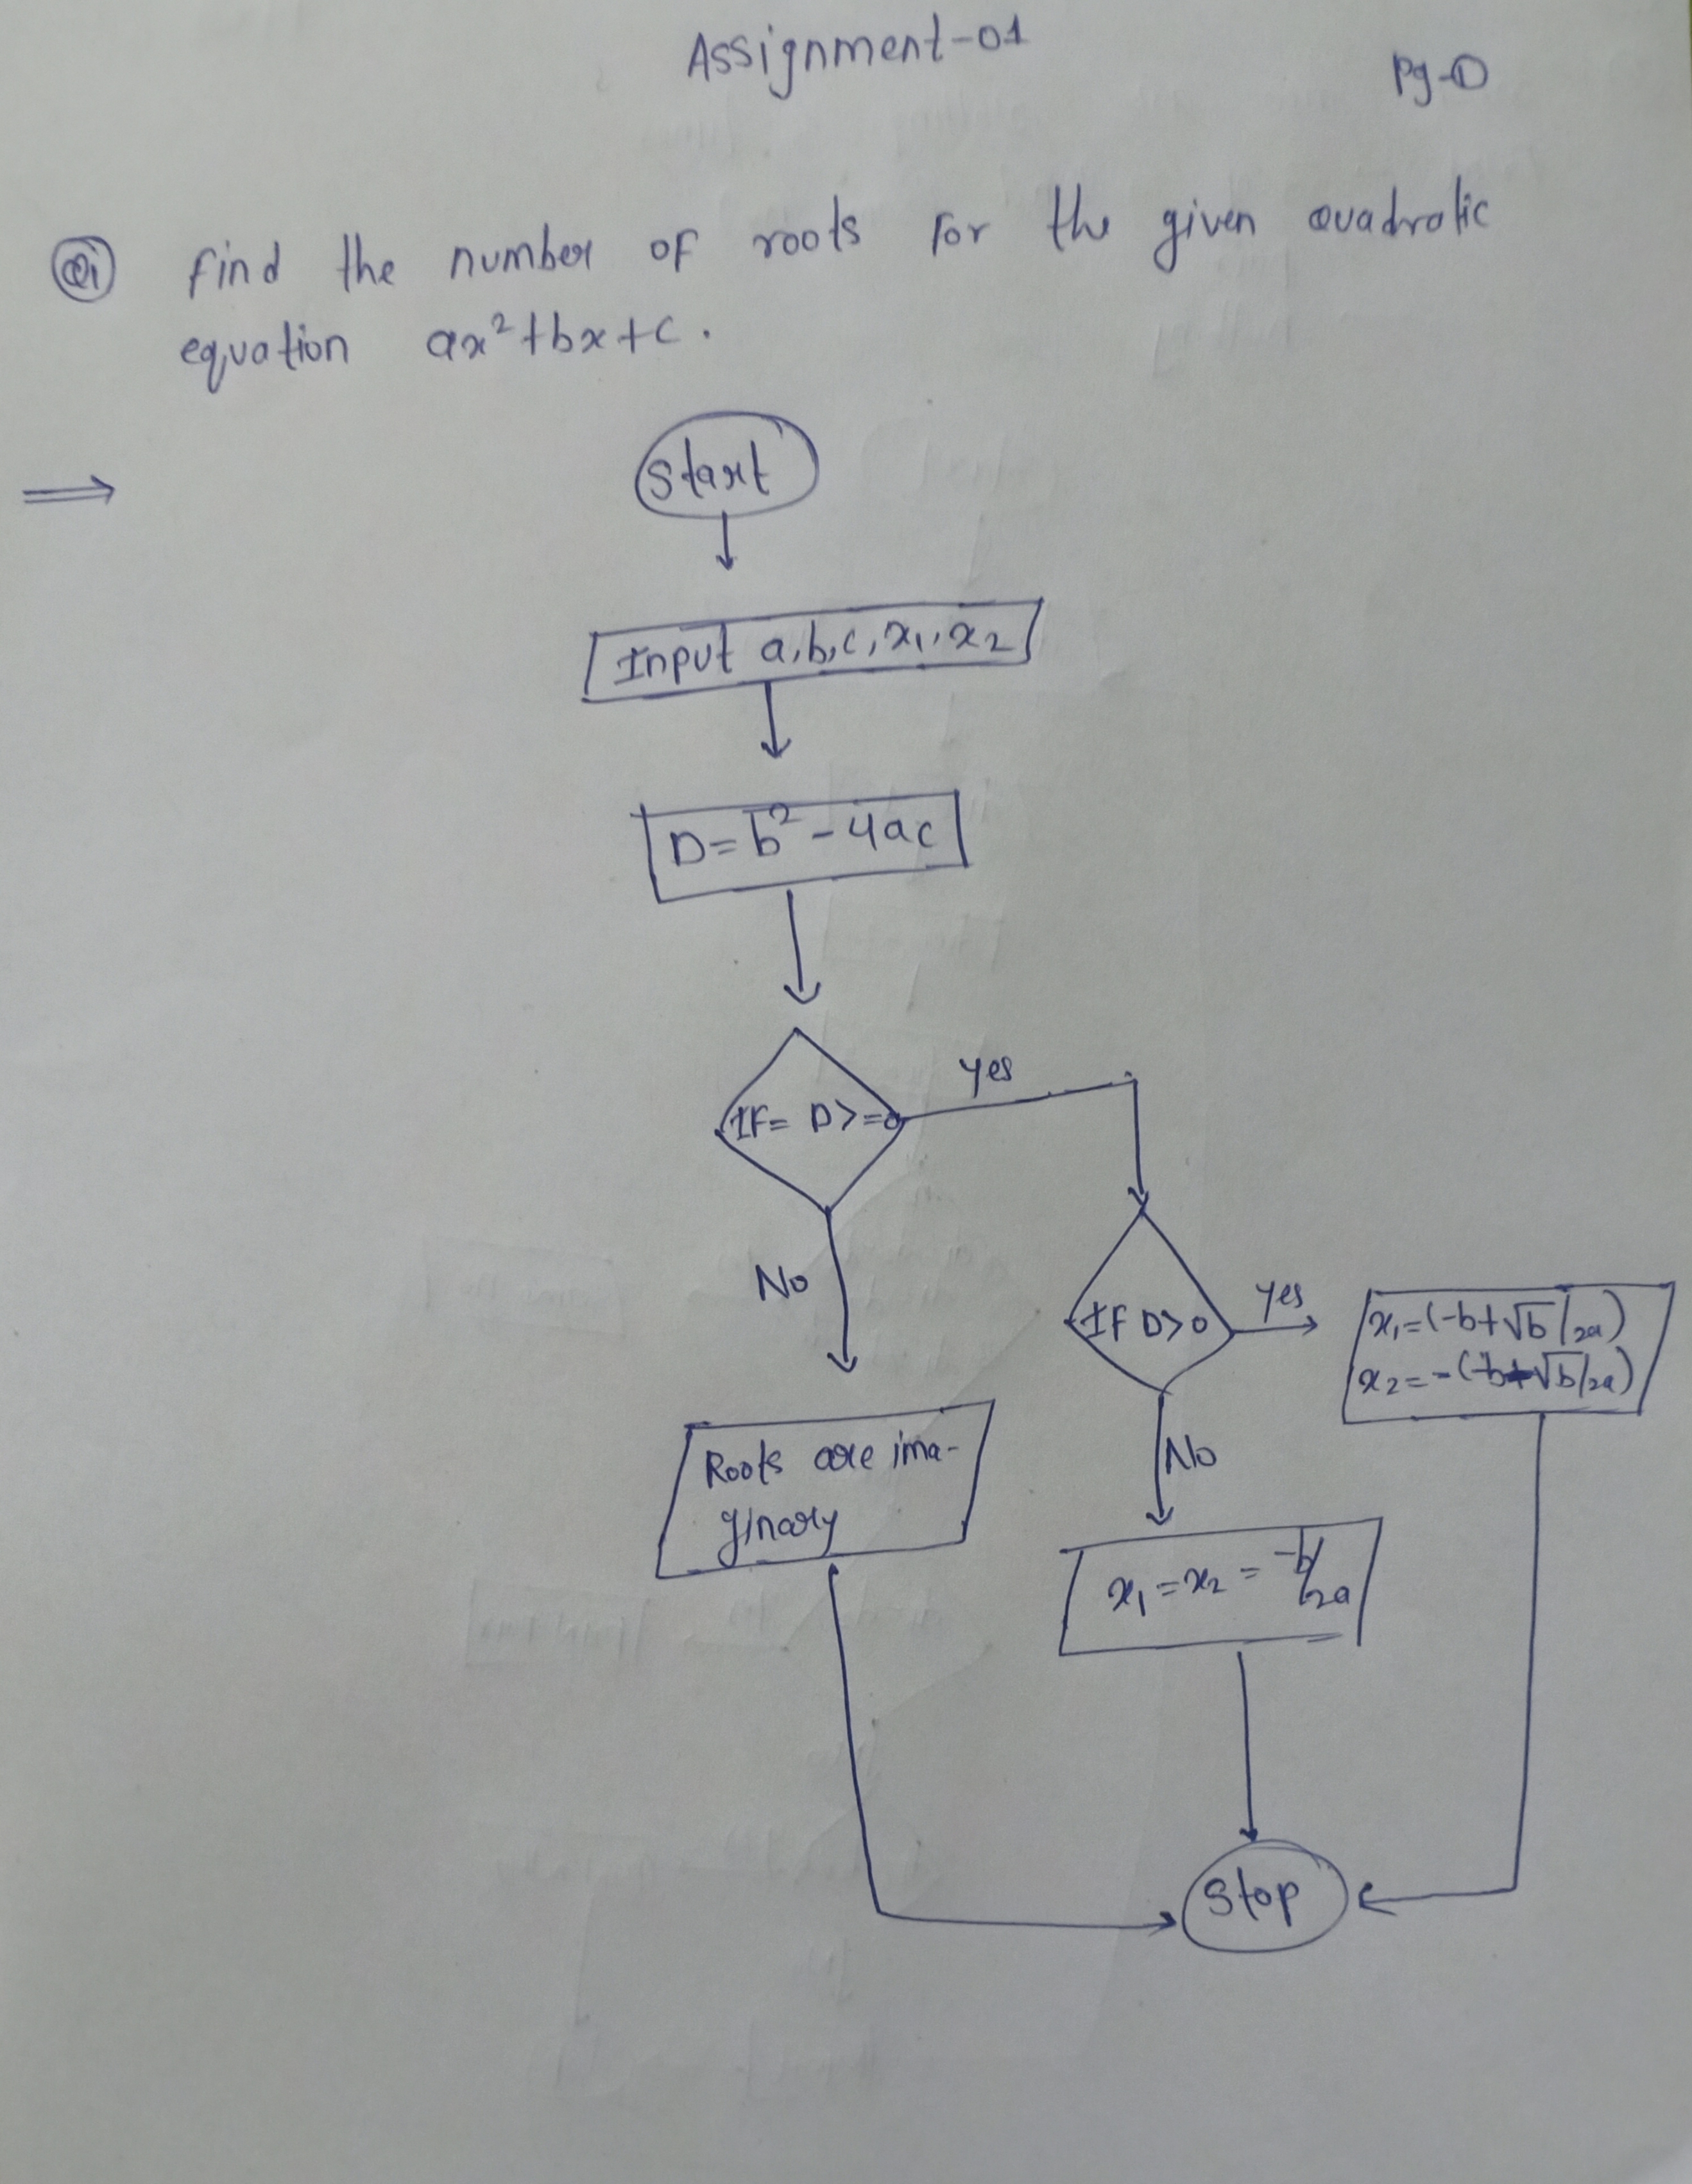 Assignment-01
Pg-①
Q1 find the number of roots for the given quadratic
equation ax²+bx+c.
⟹
Start
Input a,b,c,x₁,x₂
D=b²-4ac
IF= D>=0
yes
No
IF D>0
yes
x₁=(-b+√b/2a)
x₂=-(-b+√b/2a)
No
Roots are ima-
ginary
x₁=x₂=-b/2a
Stop